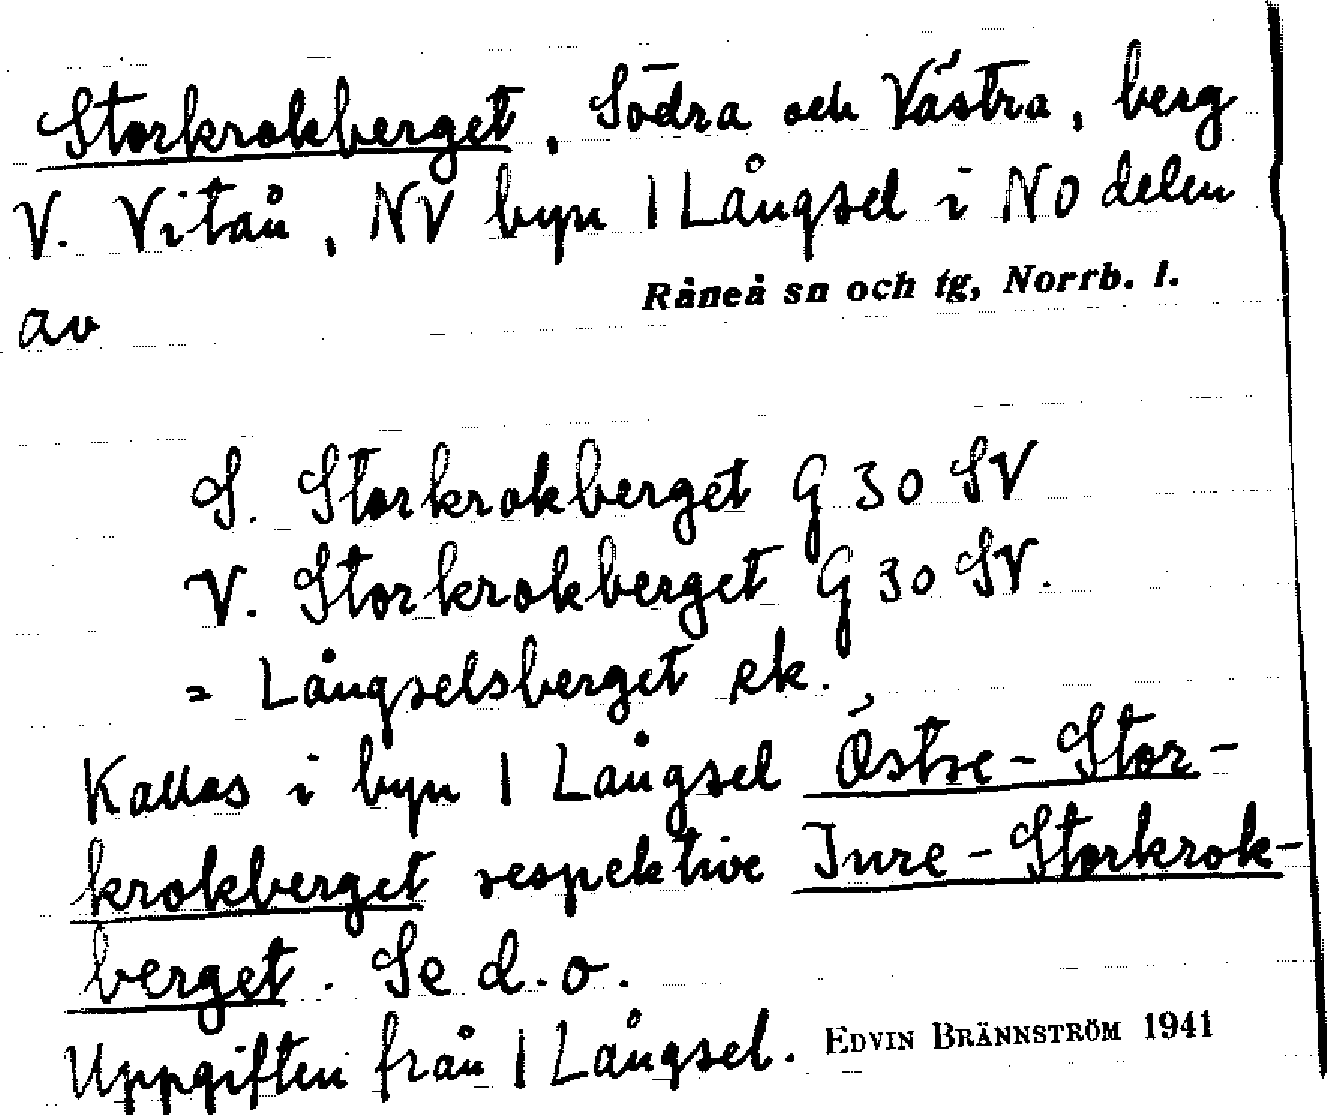 Storkrokberget, Södra och Västra, berg
V. Vitån, NV byn 1 Långsel i NO delen
av Råneå sn och tg, Norrb. l.
S. Storkrokberget G 30 SV
V. Storkrokberget G 30 SV.
= Långselsberget ek.
Kallas i byn 1 Långsel Östre-Stor-
krokberget respektive Inre-Storkrok-
berget. Se d.o.
Uppgiften från 1 Långsel. EDVIN BRÄNNSTRÖM 1941